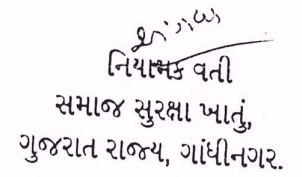 નિયામક વતી
સમાજ સુરક્ષા ખાતું,
ગુજરાત રાજ્ય, ગાંધીનગર.